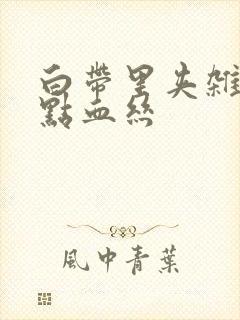 白帶里夾雜
點血絲
風中青葉